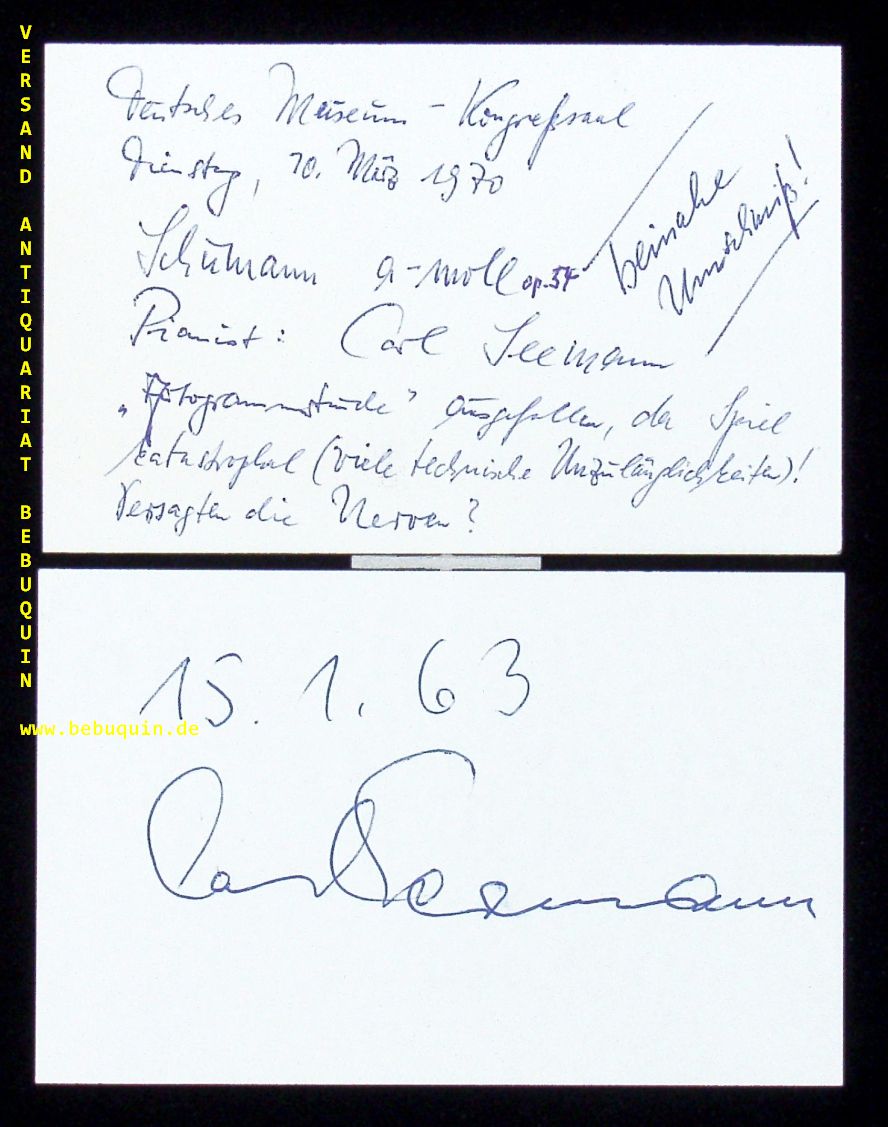 VERSAND ANTIQUARIAT BEBUQUIN
www.bebuquin.de
Deutsches Museum - Kongreßsaal
Dienstag, 10. März 1970
Schumann a-moll op. 54
beinahe
Umschmiß!
Pianist: Carl Seemann
„Autogrammstunde" ausgefallen, da Spiel
katastrophal (viele technische Unzulänglichkeiten)!
Versagten die Nerven?
15. 1. 63
Carl Seemann